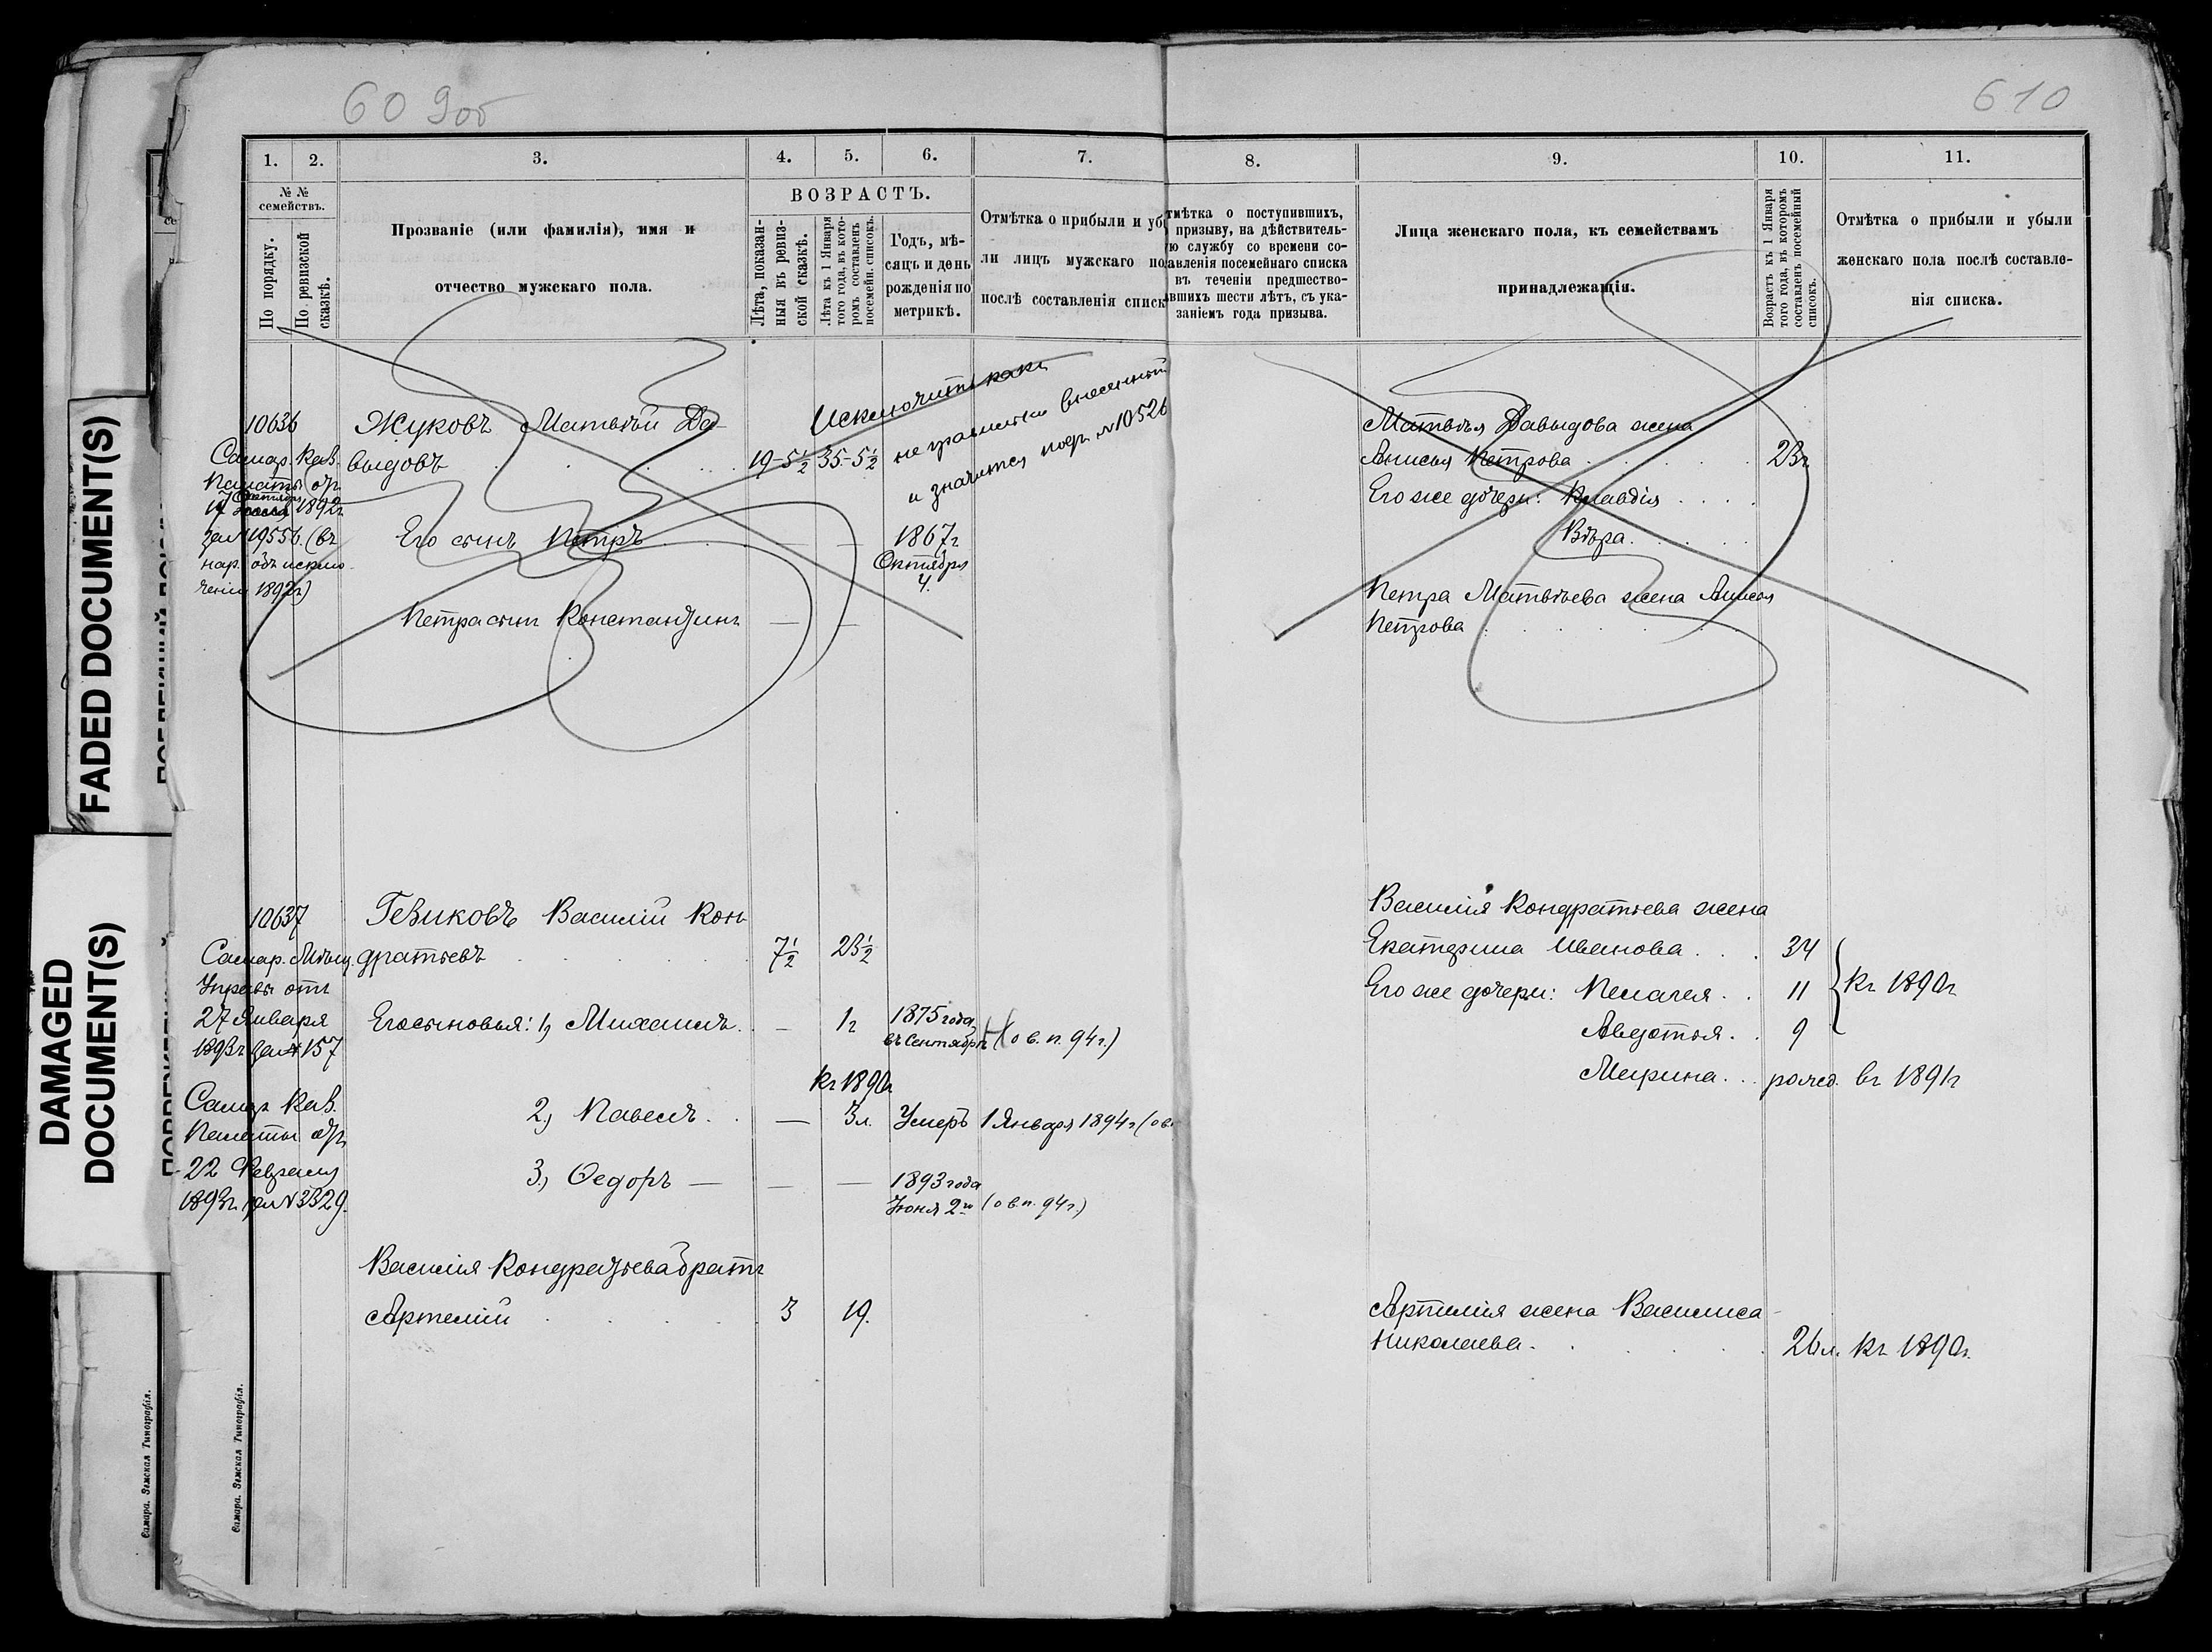 609об
610
FADED DOCUMENT(S)
DAMAGED
DOCUMENT(S)
1. 2. 3. 4. 5. 6. 7. 8. 9. 10. 11.
№ №
семействъ.
По порядку.
По ревизской
сказкѣ.
Прозваніе (или фамилія), имя и
отчество мужскаго пола.
ВОЗРАСТЪ.
Лѣта, показан-
ныя въ ревиз-
ской сказкѣ.
Лѣта къ 1 Января
того года, въ кото-
ромъ составленъ
посемейн. списокъ.
Годъ, мѣ-
сяцъ и день
рожденія по
метрикѣ.
Отмѣтка о прибыли и уб
ли лицъ мужскаго по
послѣ составленія списк
тмѣтка о поступившихъ,
призыву, на дѣйствитель-
ю службу со времени со-
авленія посемейнаго списка
въ теченіи предшество-
авшихъ шести лѣтъ, съ ука-
заніемъ года призыва.
Лица женскаго пола, къ семействамъ
принадлежащія.
Возрастъ къ 1 Января
того года, въ которомъ
составленъ посемейный
списокъ.
Отмѣтка о прибыли и убыли
женскаго пола послѣ составле-
нія списка.
10636
Самар. Каз.
Палаты отъ
17 Октября 1892г
за № 19556. (въ
нар. объ исклю-
ченіи 1892г)
Жуковъ Матвѣй Да-
выдовъ 19-5½ 35-5½
Исключить какъ
не правильно внесенный
и значится подъ № 10526
Его сынъ Петръ — — 1867г
Октября
4.
Петра сынъ Константинъ — —
Матвѣя Давыдова жена
Анисья Петрова 23г
Его же дочери: Клавдія
Вѣра.
Петра Матвѣева жена Анисья
Петрова
10637
Самар. Мѣщ.
Управы отъ
27 Января
1893г за № 157
Самар. Каз.
Палаты отъ
22 Февраля
1893г. за № 3329.
Гевиковъ Василій Кон-
дратьевъ 7½ 23½
Его сыновья: 1, Михаилъ. — 1г 1875 года,
въ Сентябрѣ (о в. п. 94 г.)
къ 1890г
2, Павелъ. — 3л. Умеръ 1 Января 1894г (о в
3., Ѳедоръ — — — 1893 года
Іюня 2го (о в. п. 94 г.)
Василія Кондратьева братъ
Артемій 3 19.
Василія Кондратьева жена
Екатерина Иванова 34
Его же дочери: Пелагея 11 къ 1890г
Авдотья. 9
Марина рожд. въ 1891г
Артемія жена Василиса
Николаева. 26л. къ 1890г.
Самара. Земская Типографія.
Самара. Земская Типографія.